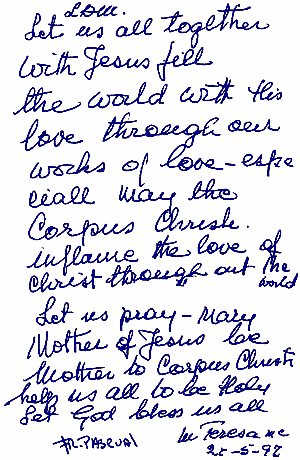 LDM.
Let us all together
with Jesus fill
the world with His
love through our
works of love - espe
ciall may the
Corpus Christi.
inflame the love of
Christ through out the
world
Let us pray - Mary
Mother of Jesus be
Mother to Corpus Christi
help us all to be Holy
Let God bless us all
FR. PASCUAL
M Teresa mc
25-5-97